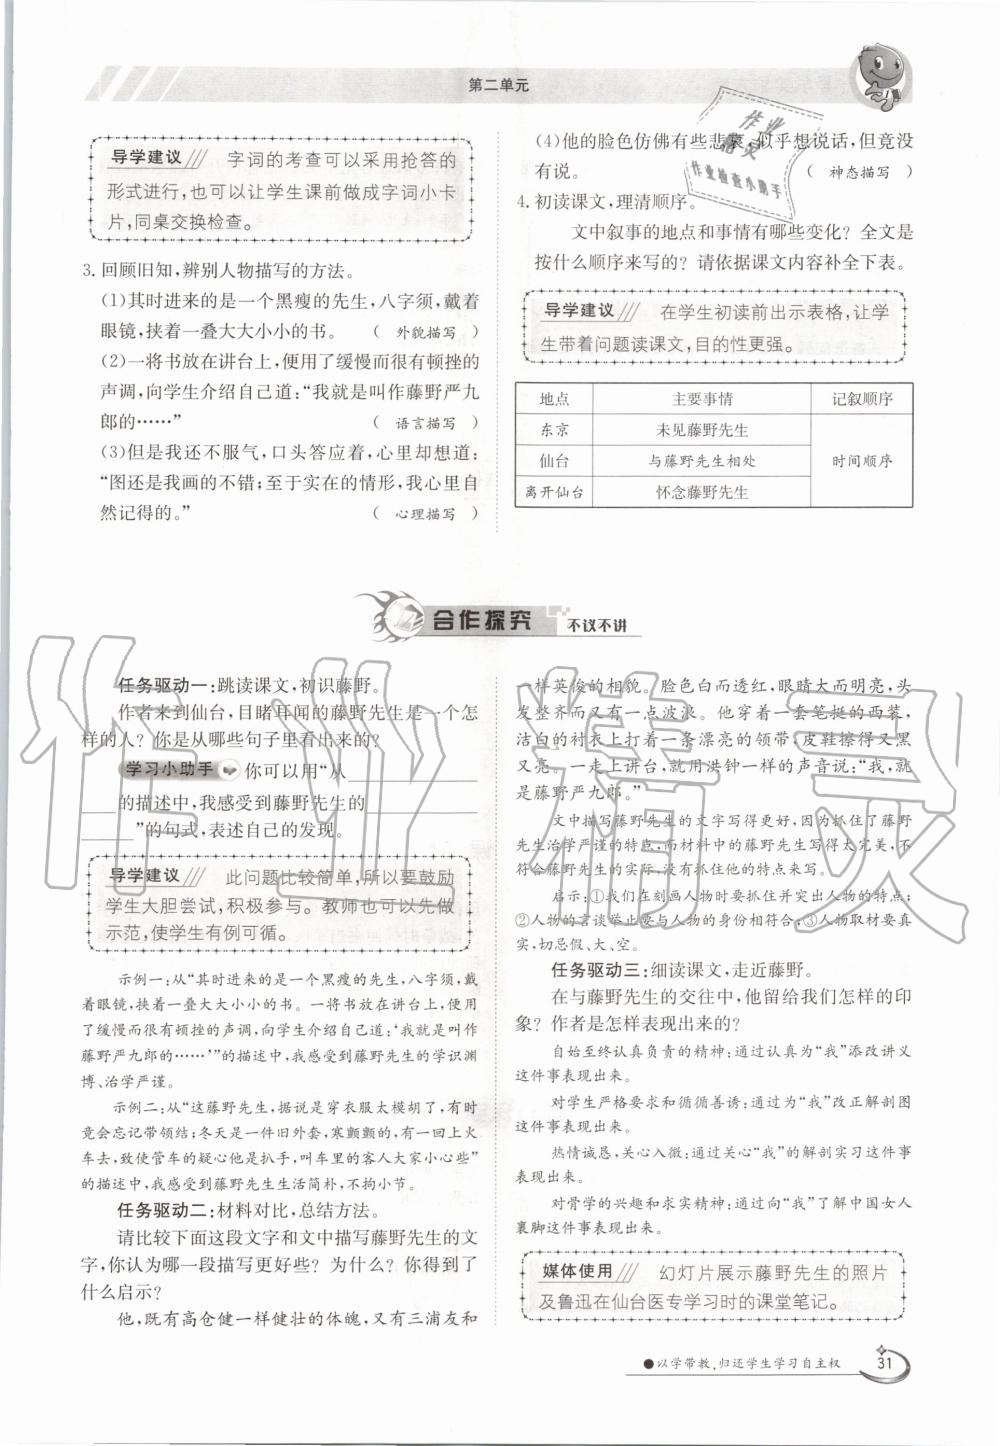 第二单元
导学建议 字词的考查可以采用抢答的
形式进行,也可以让学生课前做成字词小卡
片,同桌交换检查。
3. 回顾旧知,辨别人物描写的方法。
(1)其时进来的是一个黑瘦的先生,八字须,戴着
眼镜,挟着一叠大大小小的书。 ( 外貌描写 )
(2)一将书放在讲台上,便用了缓慢而很有顿挫的
声调,向学生介绍自己道:“我就是叫作藤野严九
郎的……” ( 语言描写 )
(3)但是我还不服气,口头答应着,心里却想道:
“图还是我画的不错;至于实在的情形,我心里自
然记得的。” ( 心理描写 )
(4)他的脸色仿佛有些悲哀,似乎想说话,但竟没
有说。 ( 神态描写 )
4. 初读课文,理清顺序。
文中叙事的地点和事情有哪些变化?全文是
按什么顺序来写的?请依据课文内容补全下表。
导学建议 在学生初读前出示表格,让学
生带着问题读课文,目的性更强。
地点 主要事情 记叙顺序
东京 未见藤野先生
仙台 与藤野先生相处 时间顺序
离开仙台 怀念藤野先生
合作探究 不议不讲
任务驱动一:跳读课文,初识藤野。
作者来到仙台,目睹耳闻的藤野先生是一个怎
样的人?你是从哪些句子里看出来的?
学习小助手 你可以用“从
的描述中,我感受到藤野先生的
”的句式,表述自己的发现。
导学建议 此问题比较简单,所以要鼓励
学生大胆尝试,积极参与。教师也可以先做
示范,使学生有例可循。
示例一:从“其时进来的是一个黑瘦的先生,八字须,戴
着眼镜,挟着一叠大大小小的书。一将书放在讲台上,便用
了缓慢而很有顿挫的声调,向学生介绍自己道:‘我就是叫作
藤野严九郎的……’”的描述中,我感受到藤野先生的学识渊
博、治学严谨。
示例二:从“这藤野先生,据说是穿衣服太模胡了,有时
竟会忘记带领结;冬天是一件旧外套,寒颤颤的,有一回上火
车去,致使管车的疑心他是扒手,叫车里的客人大家小心些”
的描述中,我感受到藤野先生生活简朴,不拘小节。
任务驱动二:材料对比,总结方法。
请比较下面这段文字和文中描写藤野先生的文
字,你认为哪一段描写更好些?为什么?你得到了
什么启示?
他,既有高仓健一样健壮的体魄,又有三浦友和
一样英俊的相貌。脸色白而透红,眼睛大而明亮,头
发整齐而又有一点波浪。他穿着一套笔挺的西装,
洁白的衬衣上打着一条漂亮的领带,皮鞋擦得又黑
又亮。一走上讲台,就用洪钟一样的声音说:“我,就
是藤野严九郎。”
文中描写藤野先生的文字写得更好,因为抓住了藤野
先生治学严谨的特点,而材料中的藤野先生写得太完美,不
符合藤野先生的实际,没有抓住他的特点来写。
启示:①我们在刻画人物时要抓住并突出人物的特点;
②人物的言谈举止要与人物的身份相符合;③人物取材要真
实,切忌假、大、空。
任务驱动三:细读课文,走近藤野。
在与藤野先生的交往中,他留给我们怎样的印
象?作者是怎样表现出来的?
自始至终认真负责的精神:通过认真为“我”添改讲义
这件事表现出来。
对学生严格要求和循循善诱:通过为“我”改正解剖图
这件事表现出来。
热情诚恳,关心入微:通过关心“我”的解剖实习这件事
表现出来。
对骨学的兴趣和求实精神:通过向“我”了解中国女人
裹脚这件事表现出来。
媒体使用 幻灯片展示藤野先生的照片
及鲁迅在仙台医专学习时的课堂笔记。
●以学带教,归还学生学习自主权 31
作业
精灵
作业检查小助手
作业精灵